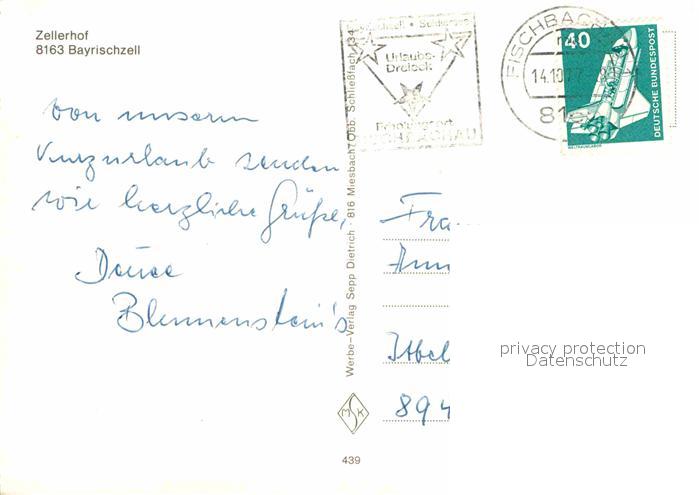 Zellerhof
8163 Bayrischzell
von unserem
Kurzurlaub senden
wir herzliche Grüße,
Blumenstein's
Werbe-Verlag Sepp Dietrich · 816 Miesbach/Obb. Schließfach 134
M S K
439
Urlaubs-
Dreieck
FISCHBACHAU
FISCHBACH
14.10.77
816
40
DEUTSCHE BUNDESPOST
WELTRAUMLABOR
Fra
Ann
894
privacy protection
Datenschutz